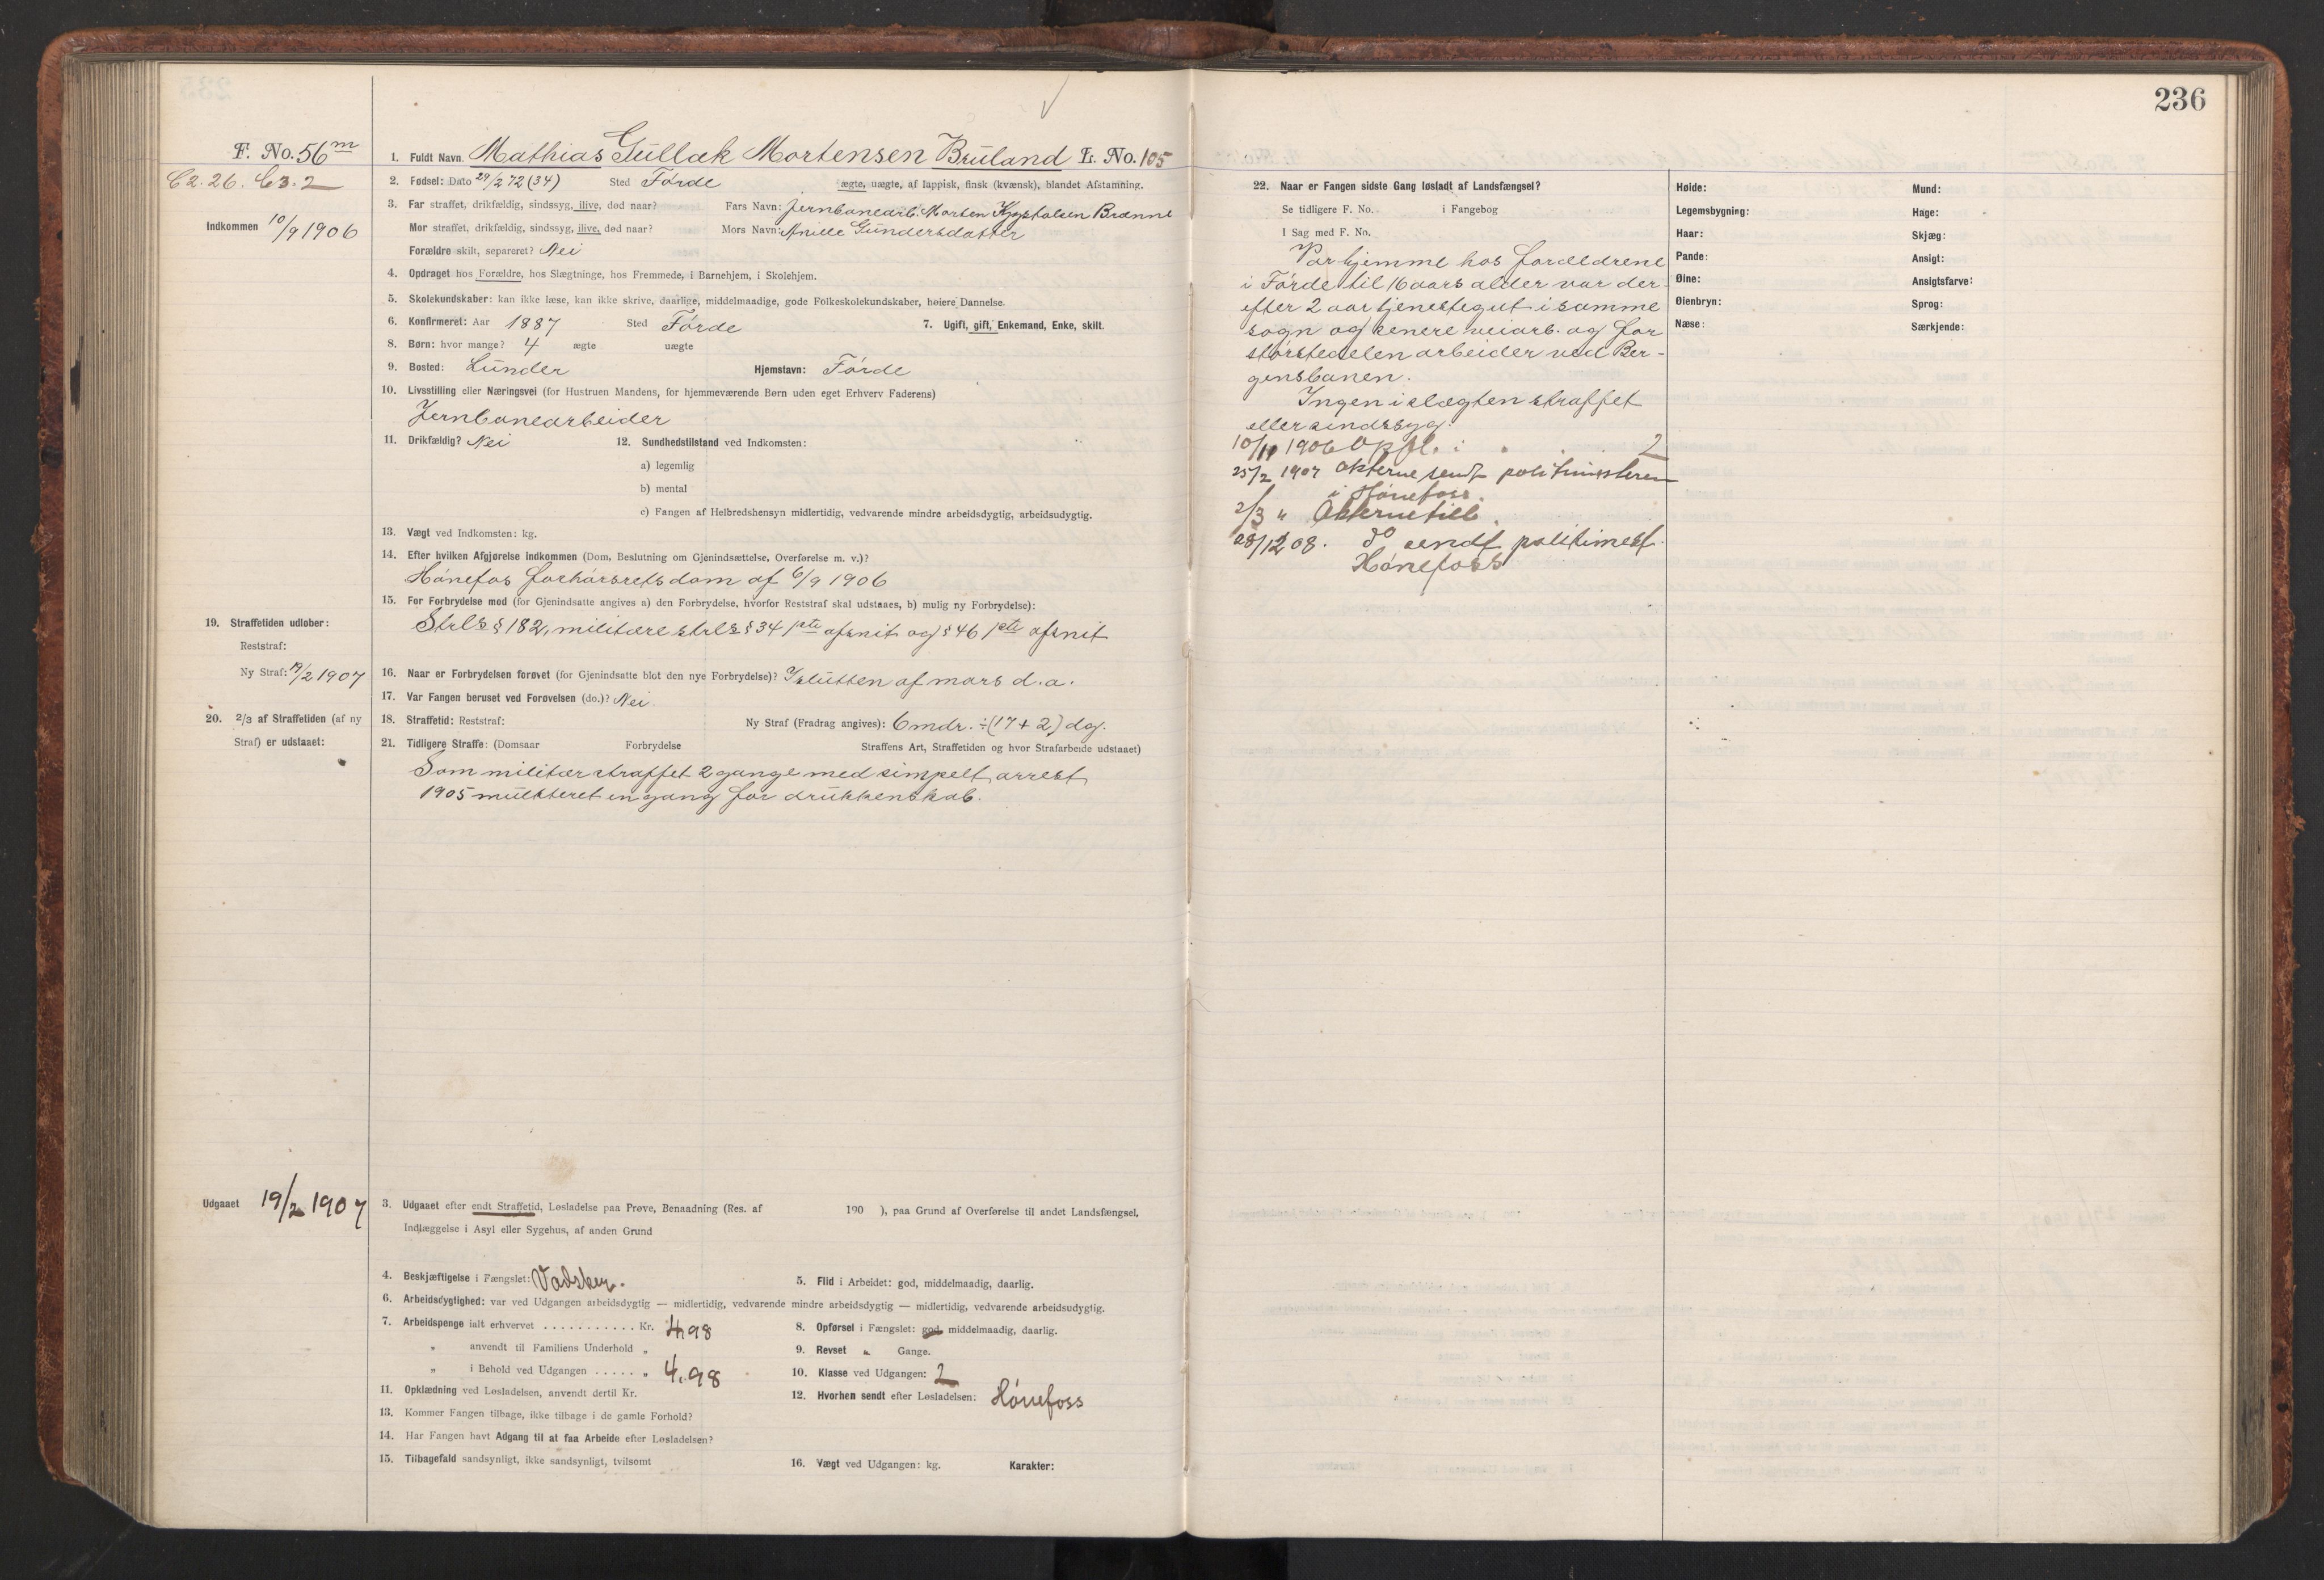 236
F. No. 56 m
C2. 26. C3. 2
Indkommen 10/9 1906
1. Fuldt Navn. Mathias Gullak Mortensen Bruland L. No. 105
2. Fødsel: Dato 29/2 72 (34) Sted Førde ægte, uægte, af lappisk, finsk (kvænsk), blandet Afstamning.
3. Far straffet, drikfældig, sindssyg, ilive, død naar? Fars Navn: Jernbanearb. Morten
Mor straffet, drikfældig, sindssyg, ilive, død naar? Mors Navn: Gundersdatter
Forældre skilt, separeret? Nei
4. Opdraget hos Forældre, hos Slægtninge, hos Fremmede, i Barnehjem, i Skolehjem.
5. Skolekundskaber: kan ikke læse, kan ikke skrive, daarlige, middelmaadige, gode Folkeskolekundskaber, høiere Dannelse.
6. Konfirmeret: Aar 1887 Sted Førde 7. Ugift, gift, Enkemand, Enke, skilt.
8. Børn: hvor mange? 4 ægte uægte
9. Bosted: Lunder Hjemstavn: Førde
10. Livsstilling eller Næringsvei (for Hustruen Mandens, for hjemmeværende Børn uden eget Erhverv Faderens)
Jernbanearbeider
11. Drikfældig? Nei 12. Sundhedstilstand ved Indkomsten:
a) legemlig
b) mental
c) Fangen af Helbredshensyn midlertidig, vedvarende mindre arbeidsdygtig, arbeidsudygtig.
13. Vægt ved Indkomsten: kg.
14. Efter hvilken Afgjørelse indkommen (Dom, Beslutning om Gjenindsættelse, Overførelse m. v.)?
Hønefos forhørsretsdom af 6/9 1906
15. For Forbrydelse mod (for Gjenindsatte angives a) den Forbrydelse, hvorfor Reststraf skal udstaaes, b) mulig ny Forbrydelse):
Strls § 182, militære strls § 34 1ste afsnit og § 46 1ste afsnit
19. Straffetiden udløber:
Reststraf:
Ny Straf: 19/2 1907
16. Naar er Forbrydelsen forøvet (for Gjenindsatte blot den nye Forbrydelse)? I slutten af mars d.a.
17. Var Fangen beruset ved Forøvelsen (do.)? Nei.
20. 2/3 af Straffetiden (af ny
Straf) er udstaaet:
18. Straffetid: Reststraf: Ny Straf (Fradrag angives): 6 mdr. ÷ (17 + 2) dg.
21. Tidligere Straffe: (Domsaar Forbrydelse Straffens Art, Straffetiden og hvor Strafarbeide udstaaet)
Som militær straffet 2 gange med simpelt arrest,
1905 mulkteret en gang for drukkenskab.
Udgaaet 19/2 1907
3. Udgaaet efter endt Straffetid, Løsladelse paa Prøve, Benaadning (Res. af 190 ), paa Grund af Overførelse til andet Landsfængsel,
Indlæggelse i Asyl eller Sygehus, af anden Grund
4. Beskjæftigelse i Fængslet: Vadsker. 5. Flid i Arbeidet: god, middelmaadig, daarlig.
6. Arbeidsdygtighed: var ved Udgangen arbeidsdygtig — midlertidig, vedvarende mindre arbeidsdygtig — midlertidig, vedvarende arbeidsudygtig.
7. Arbeidspenge ialt erhvervet . . . . . . . . . . . Kr. 4.98 8. Opførsel i Fængslet: god, middelmaadig, daarlig.
„ anvendt til Familiens Underhold „ 9. Revset „ Gange.
„ i Behold ved Udgangen . . . . . „ 4.98 10. Klasse ved Udgangen: 2
11. Opklædning ved Løsladelsen, anvendt dertil Kr. 12. Hvorhen sendt efter Løsladelsen: Hønefoss
13. Kommer Fangen tilbage, ikke tilbage i de gamle Forhold?
14. Har Fangen havt Adgang til at faa Arbeide efter Løsladelsen?
15. Tilbagefald sandsynligt, ikke sandsynligt, tvilsomt 16. Vægt ved Udgangen: kg. Karakter:
22. Naar er Fangen sidste Gang løsladt af Landsfængsel?
Se tidligere F. No. i Fangebog
I Sag med F. No.
Var hjemme hos forældrene
i Førde til 16 aars alder var der-
efter 2 aar tjenestegut i samme
sogn og senere veiarb. og for
størstedelen arbeider ved Ber-
gensbanen.
Ingen i slægten straffet
eller sindssyg.
10/11 1906 Opfl. : . . 2
25/2 1907 Akterne sendt politimesteren
i Hønefoss.
2/3 „ Akterne tilb.
28/12 08. do sendt politimest.
Hønefoss
Høide: Mund:
Legemsbygning: Hage:
Haar: Skjæg:
Pande: Ansigt:
Øine: Ansigtsfarve:
Øienbryn: Sprog:
Næse: Særkjende: